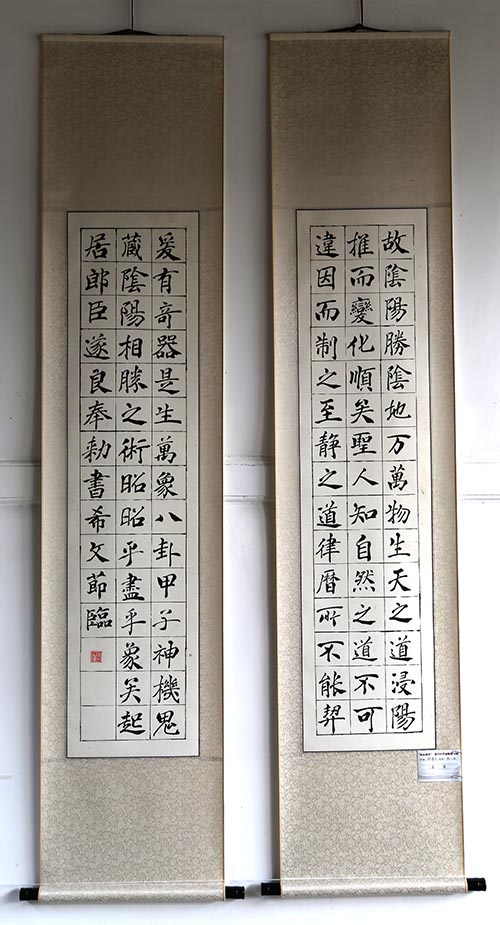 故陰陽勝陰地万萬物生天之道浸陽
推而變化順矣聖人知自然之道不可
違因而制之至静之道律曆所不能契
爰有奇器是生萬象八卦甲子神機鬼
藏陰陽相勝之術昭昭乎盡乎象矣起
居郎臣遂良奉勅書希文節臨